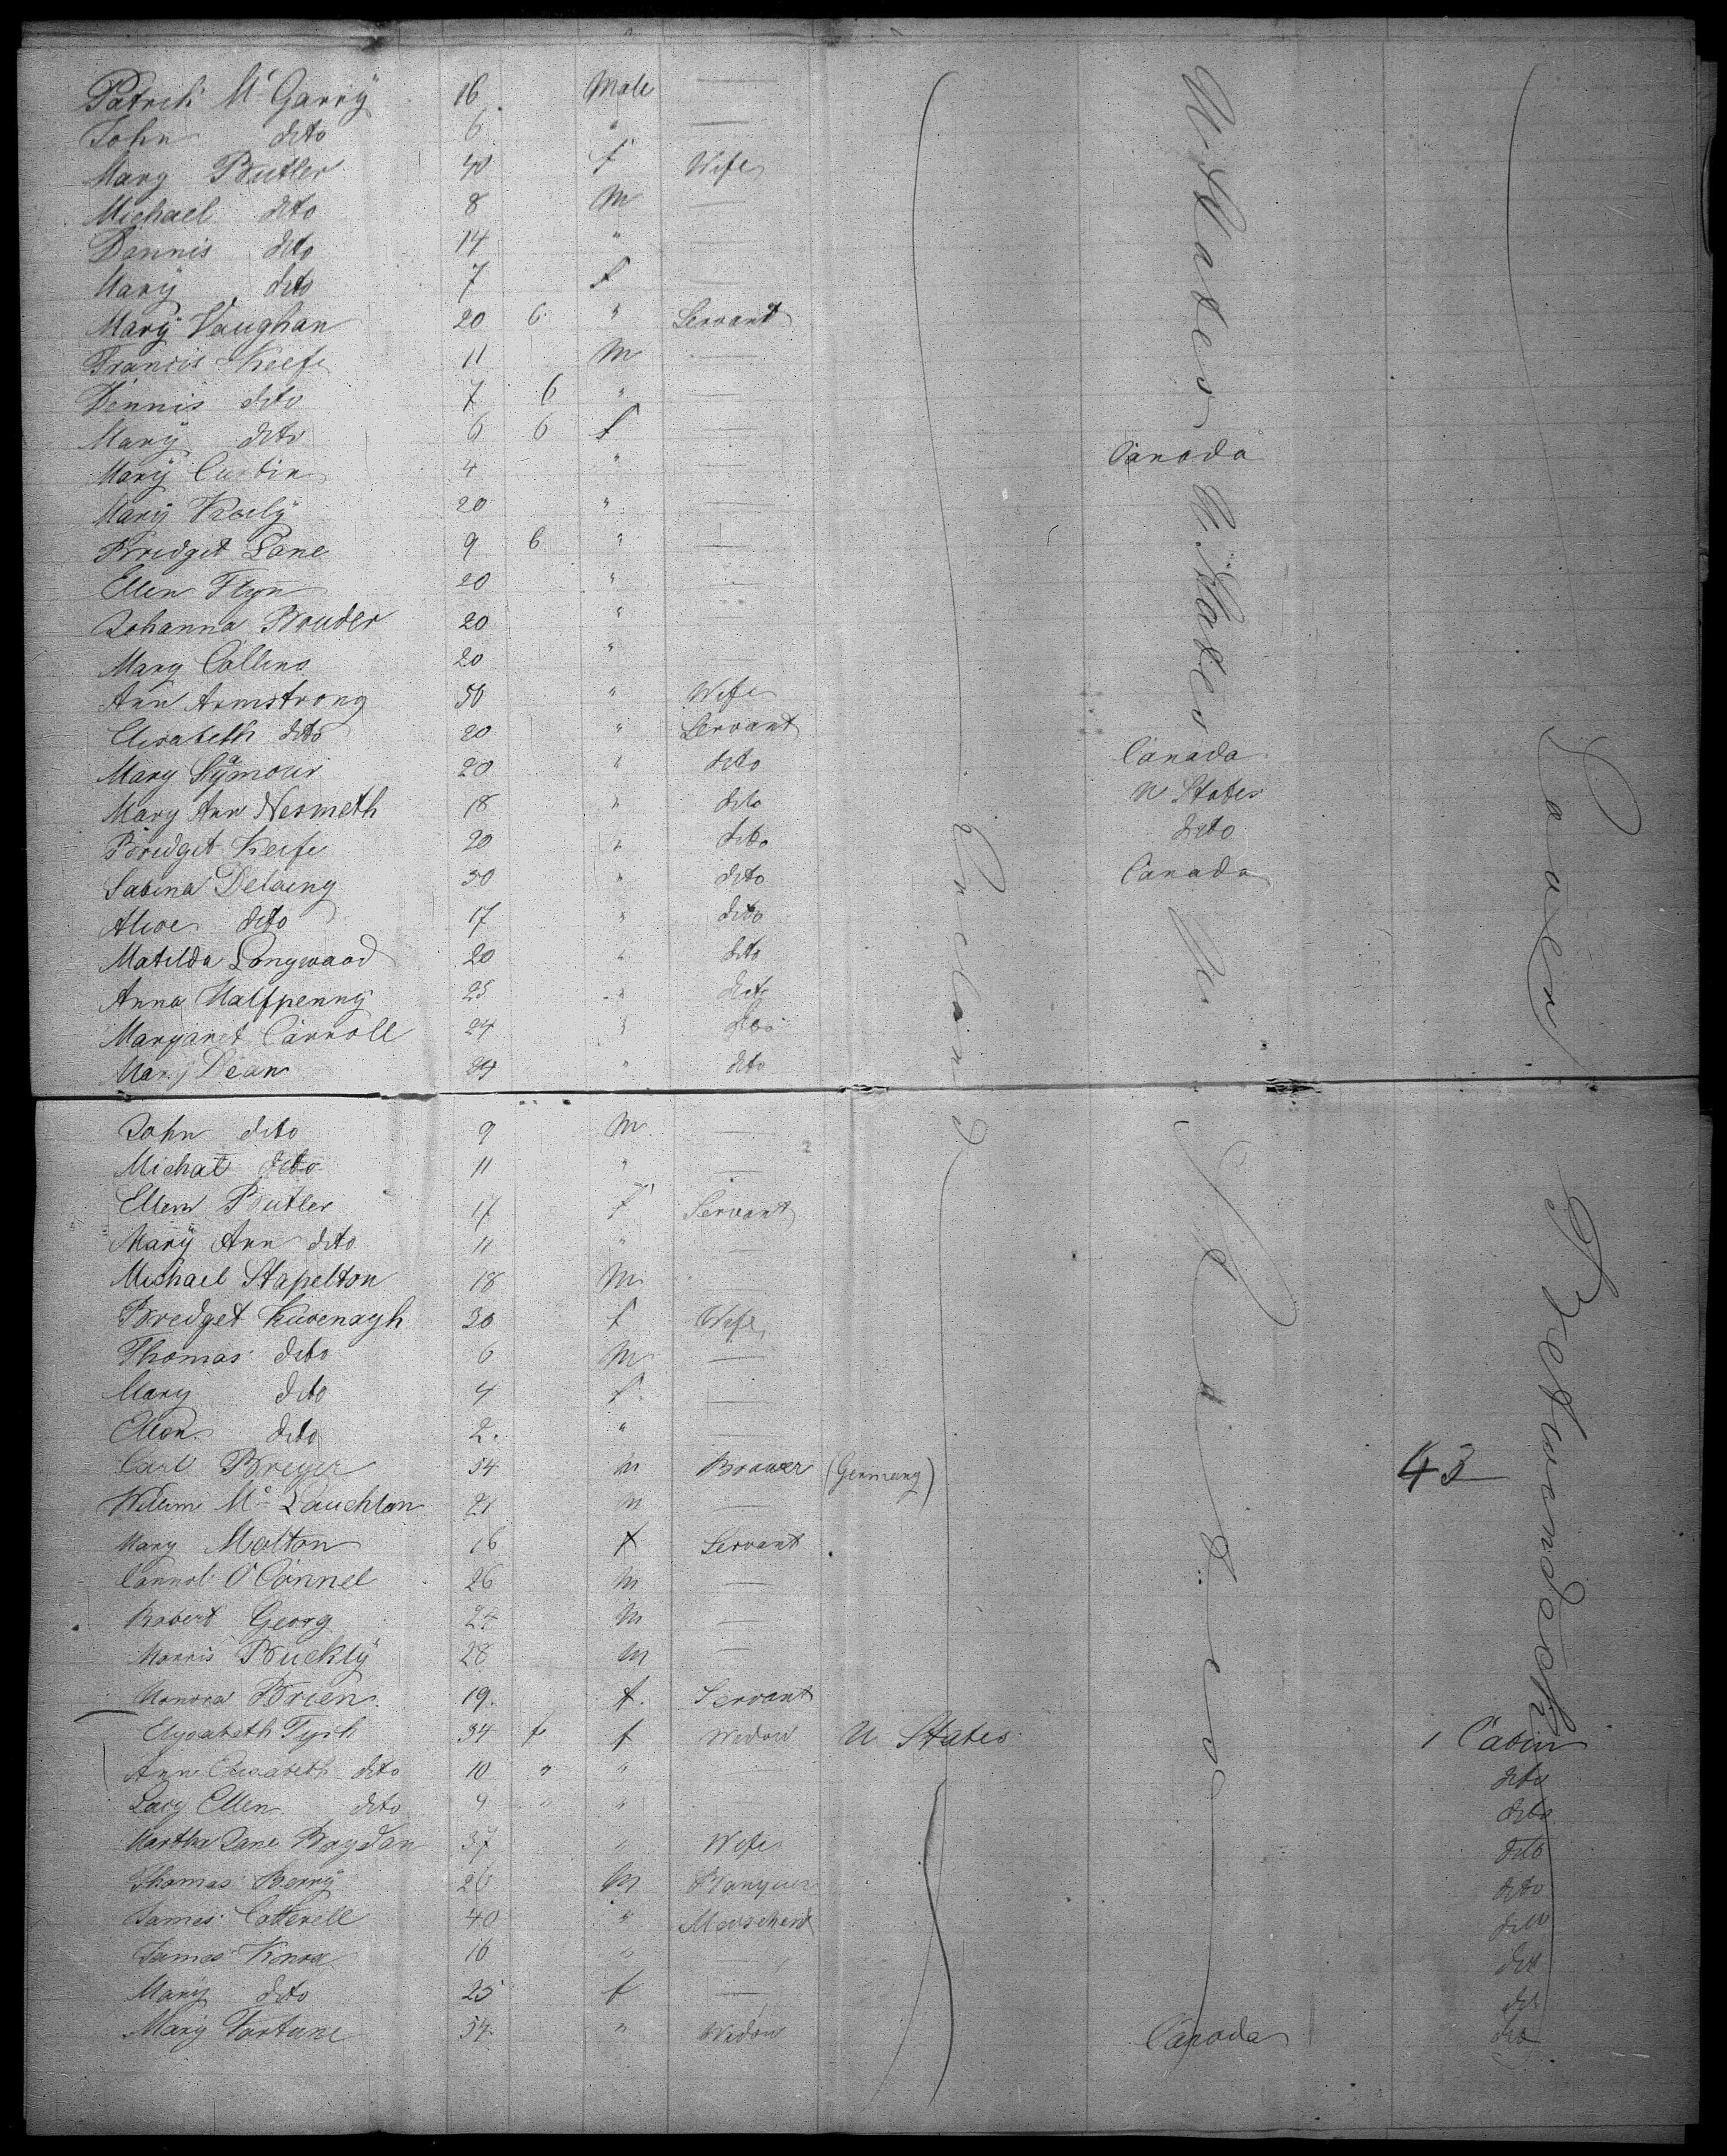 Patrick Mc Garry 16 Male —
John dito 6 " —
Mary Butler 40 f Wife
Michael dito 8 M —
Dennis dito 14 " —
Mary dito 7 f —
Mary Vaughan 20 6 " Servant
Francis Keefe 11 M —
Dennis dito 7 6 " —
Mary dito 6 6 f —
Mary 4 " — Canada
Mary 20 " —
Bridget Lane 9 6 " —
Ellen Flyn 20 " —
Johanna Bruder 20 " —
Mary Collins 20 " —
Ann Armstrong 50 " Wife
Elisabeth dito 20 " Servant
Mary Symour 20 " dito Canada
Mary Ann Nesmeth 18 " dito U States
Bridget Keefe 20 " dito dito
Sabina Delaeny 50 " dito Canada
Alice dito 17 " dito
Matilda Longwaad 20 " dito
Anna Halfpenny 25 " dito
Margaret Carroll 24 " dito
Mary Dean 24 " dito
John dito 9 M —
Michal dito 11 " —
Ellen Butler 17 f Servant
Mary Ann dito 11 " —
Michael Stapelton 18 M —
Bredget Kavenagh 30 f Wife
Thomas dito 6 M —
Mary dito 4 f —
Ellen dito 2. " —
Carl Breyer 54 m Brower (Germany) 43
Willem Mc Lauchlan 21 m —
Mary Molton 16 f Servant
Connol O'Connel 26 m —
Robert Georg 24 M —
Morris Buckly 28 m —
Honora Brien 19. f. Servant
Elysabeth 34 f f Widow U States 1 Cabin
Ann Elisabeth dito 10 " " — dito
Lucy Ellen dito 4 " " — dito
Martha Jane Bogdan 37 " Wife dito
Thomas Berry 26 M Banquer dito
James Cotterell 40 " Merschent dito
James Knox 16 " — dito
Mary dito 25 f — dito
Mary Fortune 54 " Widow Canada dito
U States
U. States
U. States
Ireland
Lower
Zwischendeck